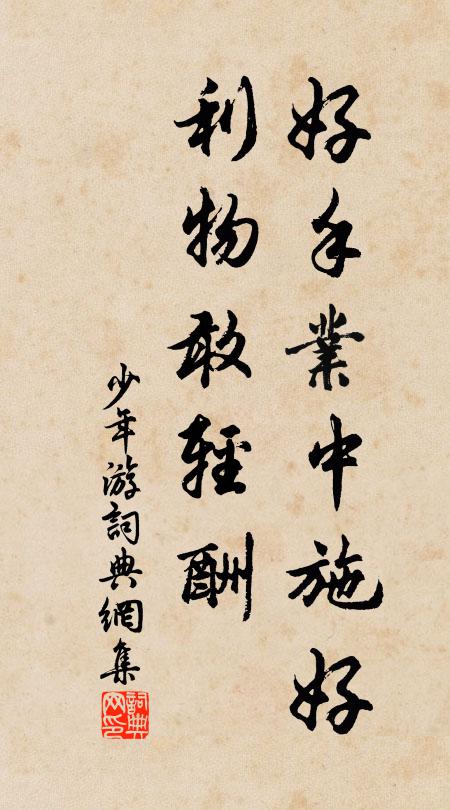 好手業中施好
利物敢輕酬
少年游詞典網集
詞典网印